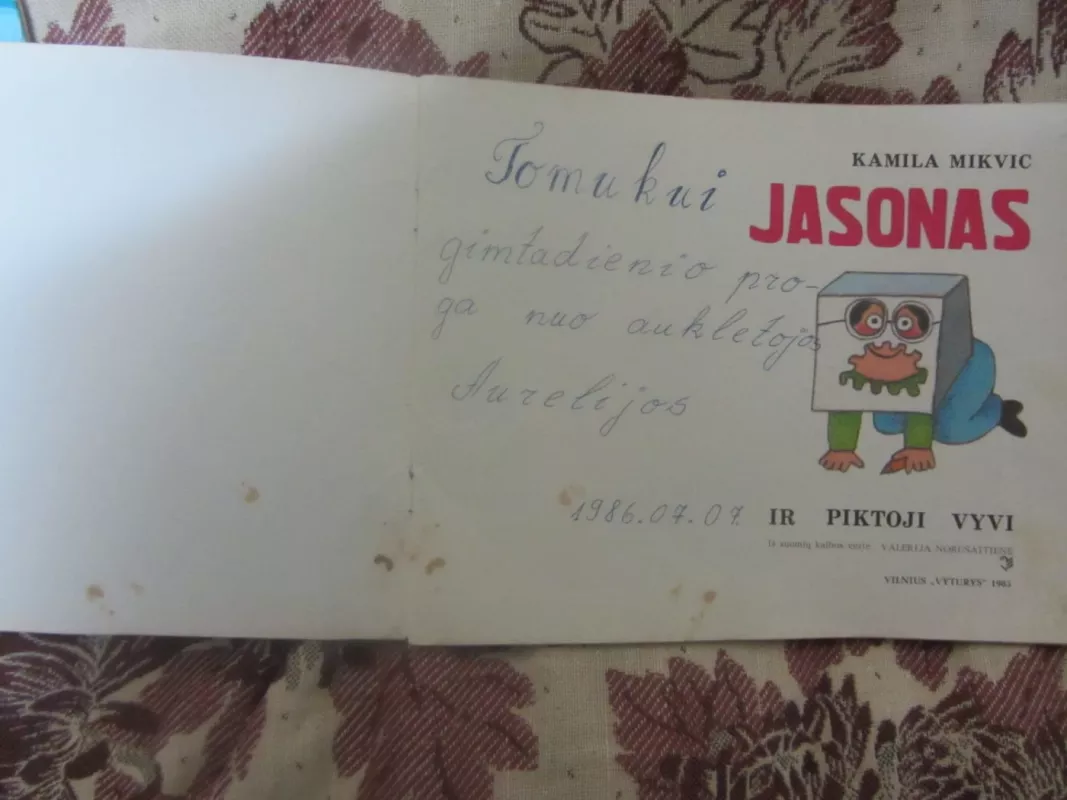 Tomukui
gimtadienio pro-
ga nuo auklėtojos
Aurelijos
1986.07.07.
KAMILA MIKVIC
JASONAS
IR PIKTOJI VYVI
Iš suomių kalbos vertė VALERIJA NORUŠAITIENĖ
VILNIUS „VYTURYS" 1985